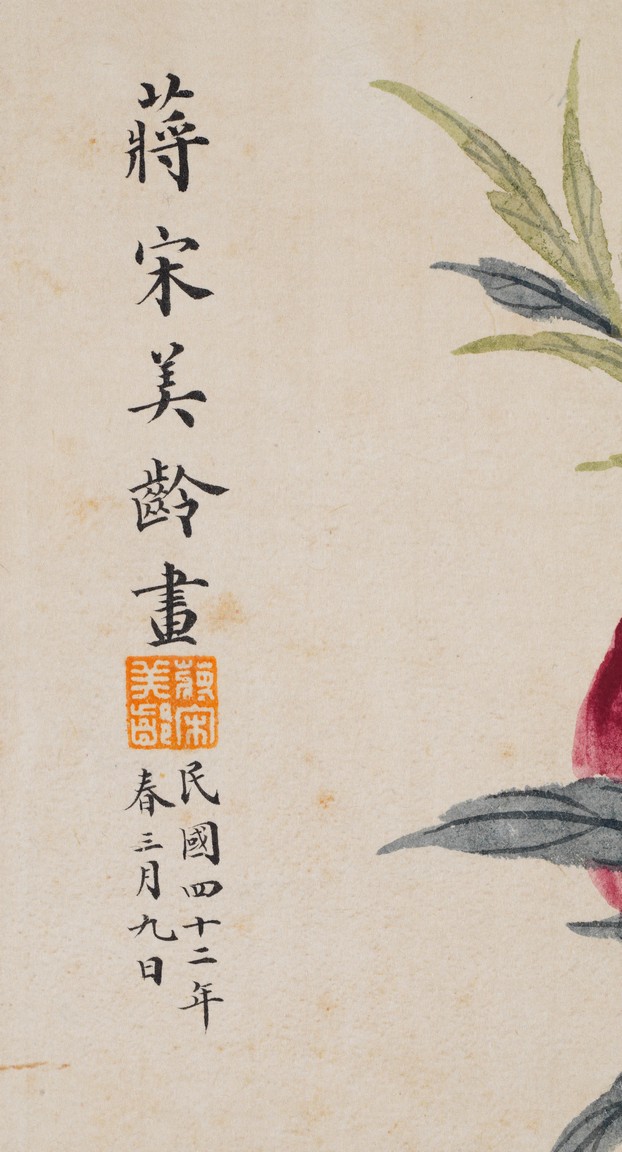 蔣宋美齡畫
蔣宋美齡
民國四十二年
春三月九日